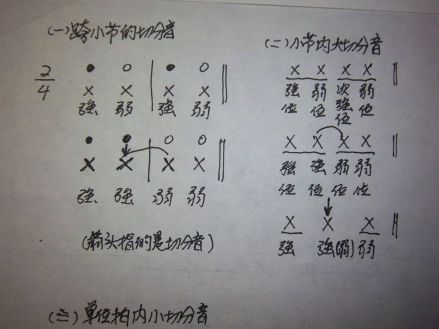 (一)跨小节的切分音
2/4
● ○ | ● ○
X X | X X
强 弱 强 弱
● ● ○ ○
X X | X X
强 强 弱 弱
(箭头指的是切分音)
(二)小节内大切分音
X X X X
强位 弱位 次强位 弱位
X X X X
强位 强位 弱位 弱位
X X X
强 强(弱) 弱
(三)单位拍内小切分音